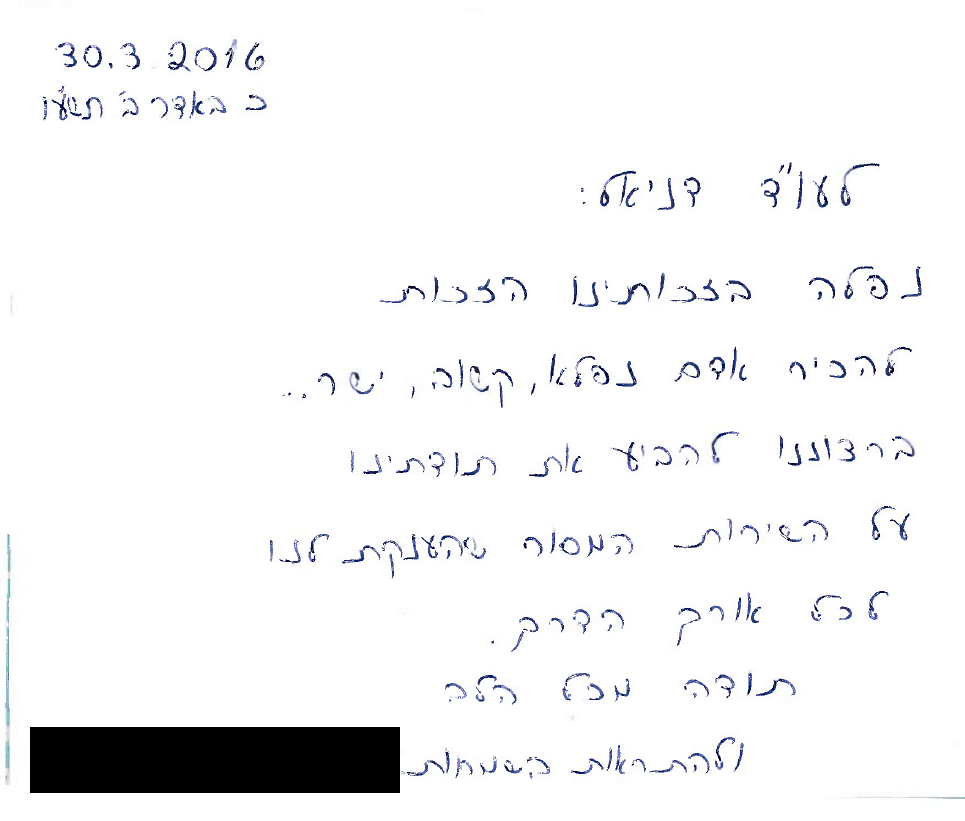 30.3.2016
כ באדר ב' תשע"ו
לעו"ד דניאל:
נפלה בזכותינו הזכות
להכיר אדם נפלא, קשוב, ישר...
ברצוננו להביע את תודתינו
על השירות המסור שהענקת לנו
לכל אורך הדרך.
תודה מכל הלב
ולהתראות בשמחות.